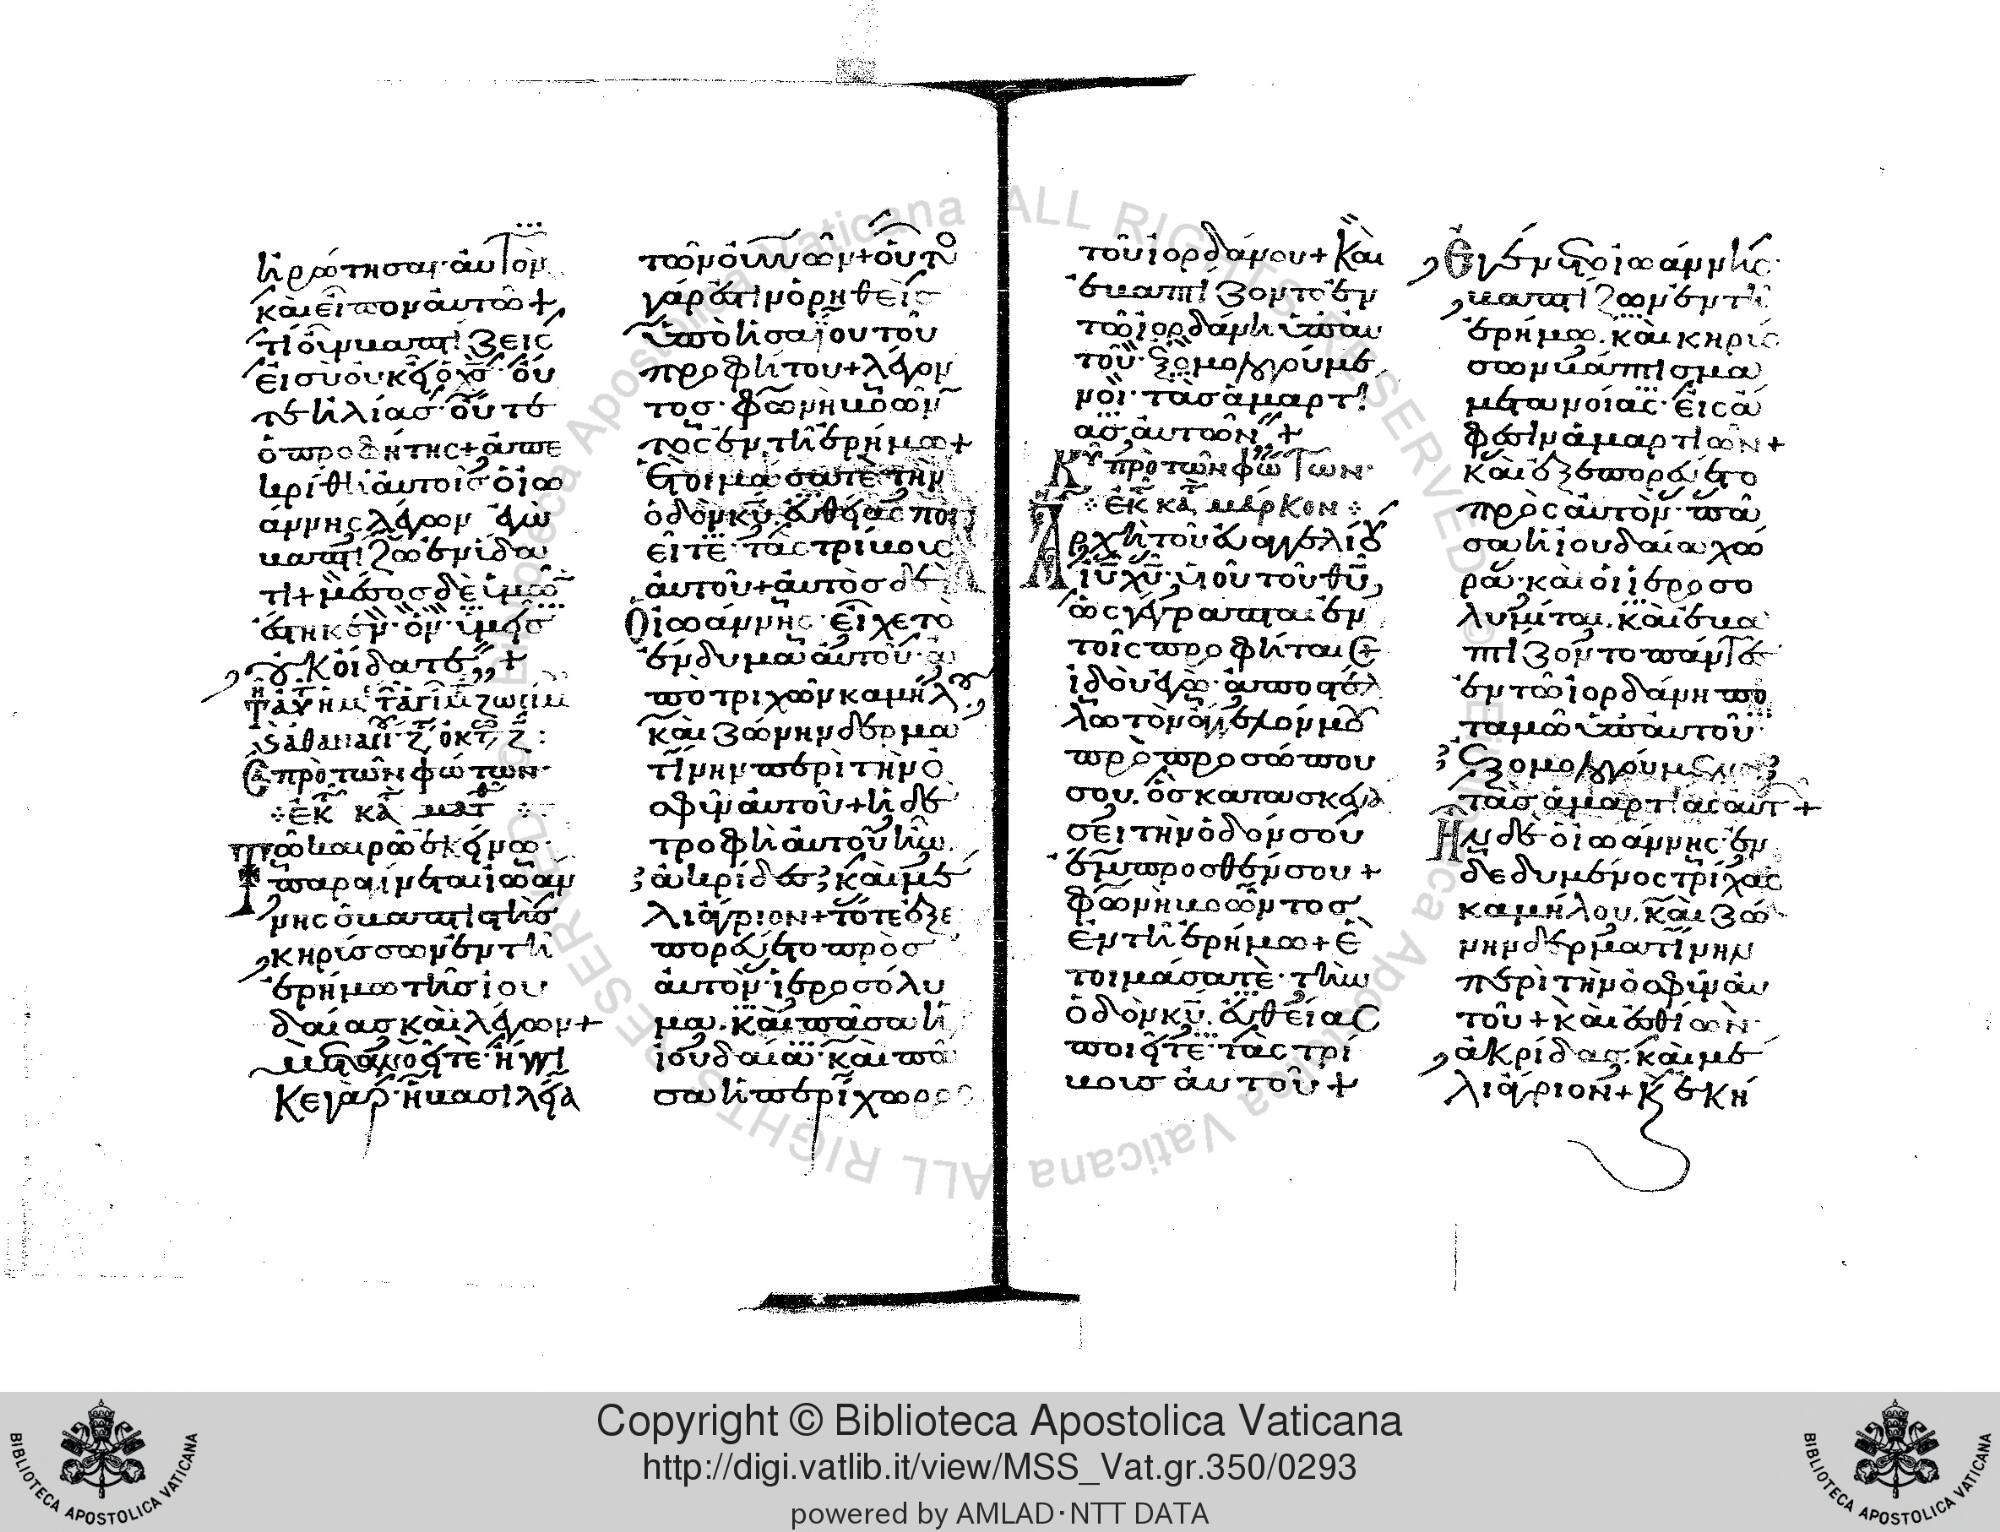 ἠρώτησαν αὐτὸν
καὶ εἶπον αὐτῶ +
τί οὖν βαπτίζεις
εἰ σὺ οὐκ εἶ ὁ χς· οὔ
τε ἠλίας· οὔτε
ὁ προφήτης + ἀπε
κρίθη αὐτοῖς ὁ ἰω
άννης λέγων ἐγὼ
βαπτίζω ἐν ὕδα
τι + μέσος δὲ ὑμῶν
ἕστηκεν· ὃν ὑμεῖς
οὐκ οἴδατε +
πρὸ τῶν φώτων·
ἐκ κατ ματθ
Τῶ καιρῶ ἐκείνω·
παραγίνεται ἰωάν
νης ὁ βαπτιστὴς
κηρύσσων ἐν τῆ
ἐρήμω τῆς ἰου
δαίας καὶ λέγων +
μετανοεῖτε· ἤγγι
κε γὰρ· ἡ βασιλεία
τῶν οὐνῶν + οὗτος
γάρ ἐστιν ὁ ρηθεὶς
ὑπὸ ἠσαΐου τοῦ
προφήτου + λέγον
τος· φωνὴ βοῶν
τος ἐν τῆ ἐρήμω +
Ἑτοιμάσατε τὴν
ὁδὸν κυ· εὐθείας ποι
εῖτε· τὰς τρίβους
αὐτοῦ + αὐτὸς δὲ
Ὁ ἰωάννης· εἶχε τὸ
ἔνδυμα αὐτοῦ· ἀ
πὸ τριχῶν καμήλου·
καὶ ζώνην δερμα
τίνην περὶ τὴν ὀ
σφὺν αὐτοῦ + ἡ δὲ
τροφὴ αὐτοῦ ἦν·
ἀκρίδες καὶ μέ
λι ἄγριον + τότε ἐξε
πορεύετο πρὸς
αὐτὸν· ἱεροσόλυ
μα· καὶ πᾶσα ἡ
ἰουδαία· καὶ πᾶ
σα ἡ περίχωρος
τοῦ ἰορδάνου + καὶ
ἐβαπτίζοντο ἐν
τῶ ἰορδάνη ὑπ' αὐ
τοῦ· ἐξομολογούμε
νοι· τὰς ἁμαρτί
ας αὐτῶν +
Κυ πρὸ τῶν φώτων·
ἐκ κατ μάρκον
Ἀρχὴ τοῦ εὐαγγελίου
ιυ χυ· υἱοῦ τοῦ θυ,
ὡς γέγραπται ἐν
τοῖς προφήταις +
ἰδοὺ ἐγὼ· ἀποστέλ
λω τὸν ἄγγελόν μου
πρὸ προσώπου
σου· ὃς κατασκευά
σει τὴν ὁδόν σου
ἔμπροσθέν σου +
φωνὴ βοῶντος
ἐν τῆ ἐρήμω + ἑ
τοιμάσατε· τὴν
ὁδὸν κυ· εὐθείας
ποιεῖτε· τὰς τρί
βους αὐτοῦ +
Ἐγένετο ἰωάννης·
βαπτίζων ἐν τῆ
ἐρήμω· καὶ κηρύς
σων βάπτισμα
μετανοίας· εἰς ἄ
φεσιν ἁμαρτιῶν +
καὶ ἐξεπορεύετο
πρὸς αὐτὸν· πᾶ
σα ἡ ἰουδαία χώ
ρα· καὶ οἱ ἱεροσο
λυμῖται· καὶ ἐβα
πτίζοντο πάντες
ἐν τῶ ἰορδάνη πο
ταμῶ ὑπ' αὐτοῦ·
ἐξομολογούμενοι
τὰς ἁμαρτίας αὐτ +
Ἦν δὲ ὁ ἰωάννης· ἐν
δεδυμένος τρίχας
καμήλου· καὶ ζώ
νην δερματίνην
περὶ τὴν ὀσφὺν αὐ
τοῦ + καὶ ἐσθίων·
ἀκρίδας· καὶ μέ
λι ἄγριον + κ ἐκή
Copyright © Biblioteca Apostolica Vaticana
http://digi.vatlib.it/view/MSS_Vat.gr.350/0293
powered by AMLAD·NTT DATA
BIBLIOTECA APOSTOLICA VATICANA
BIBLIOTECA APOSTOLICA VATICANA